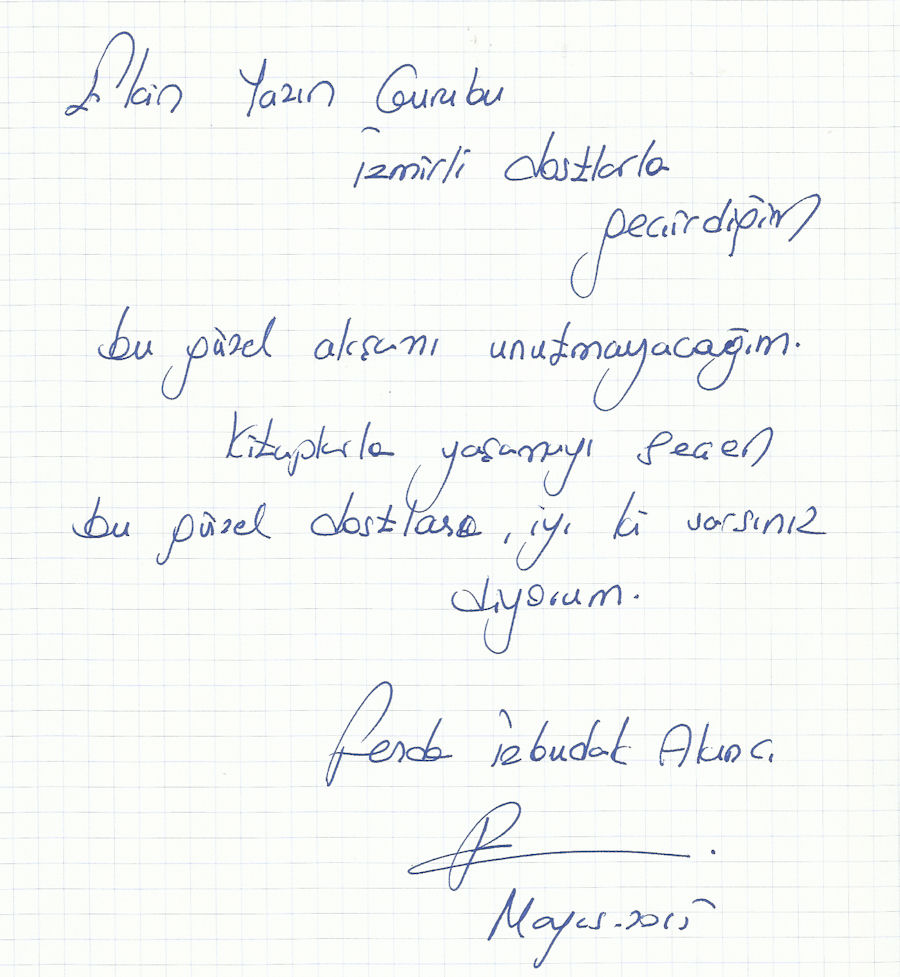 Yazın Gurubu
İzmirli dostlarla
geçirdiğim
bu güzel akşamı unutmayacağım.
Kitaplarla yaşamayı seçen
bu güzel dostlara, iyi ki varsınız
diyorum.
Ferda İzbudak Akıncı
Mayıs-2015